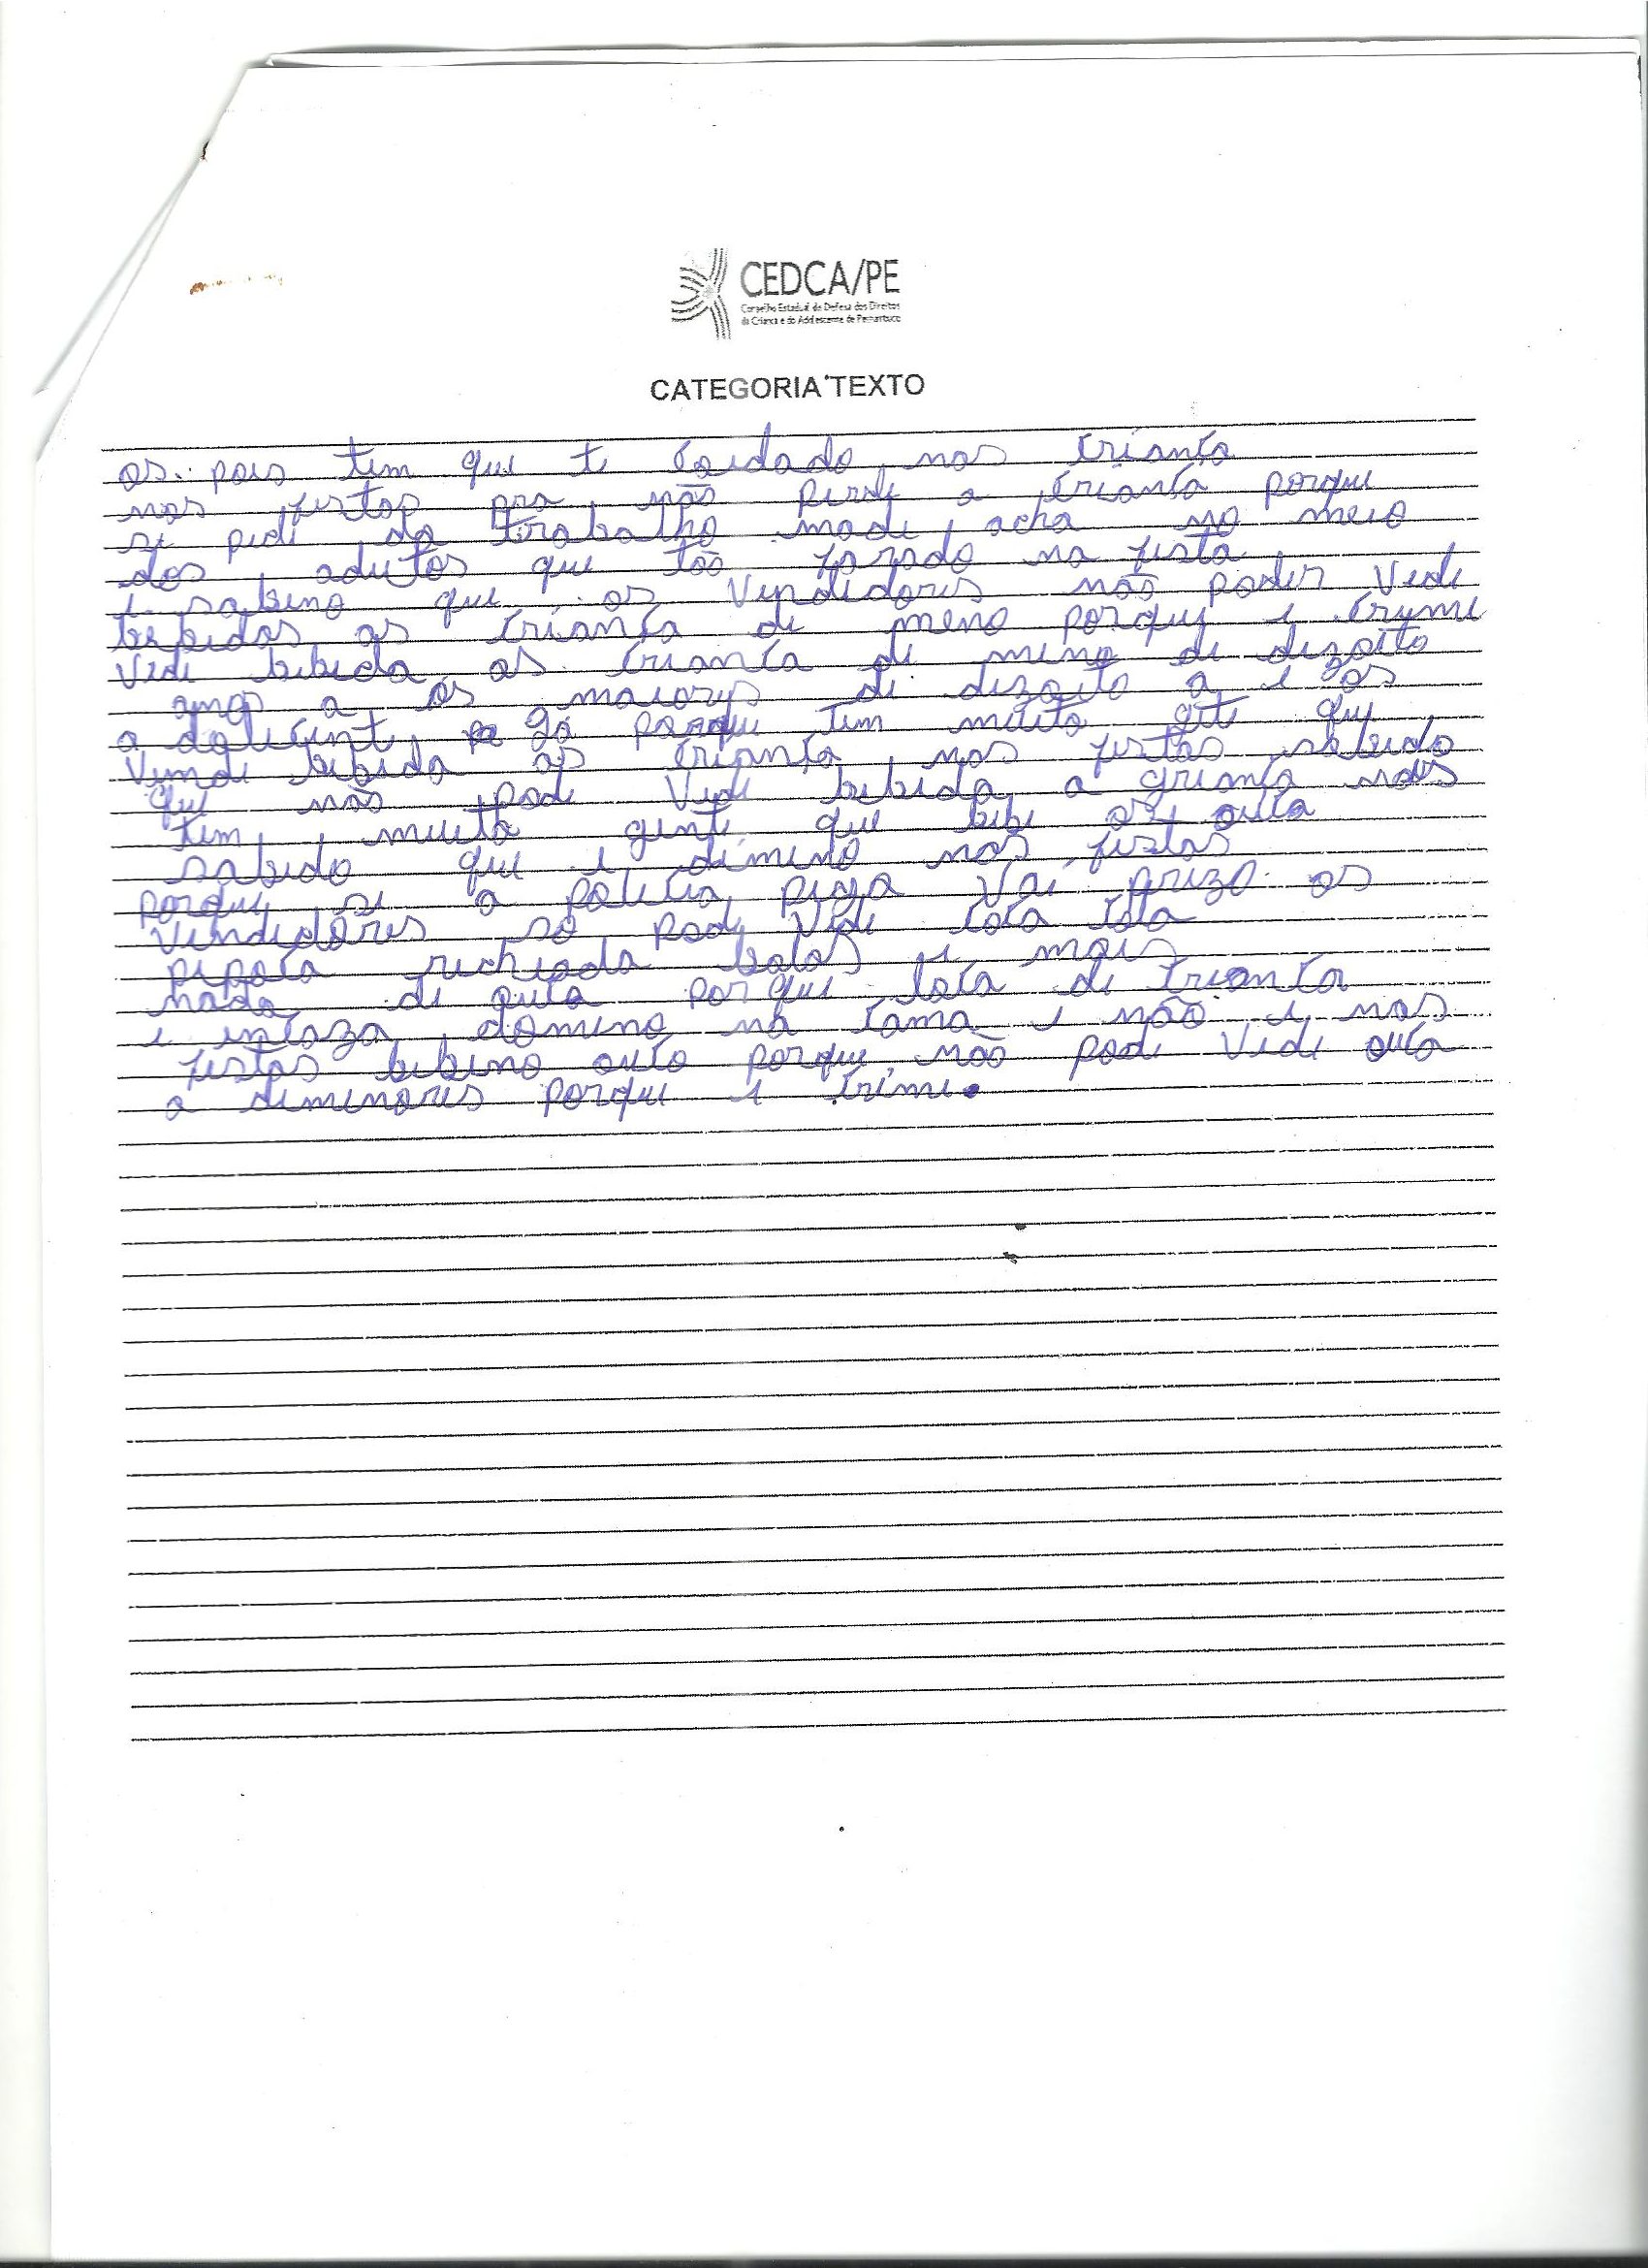 CEDCA/PE
Conselho Estadual de Defesa dos Direitos
da Criança e do Adolescente de Pernambuco
CATEGORIA TEXTO
os pais tem que te coidado nas criança
nas festas pra não perde a criança porque
si pedi da trabalho made acha no meio
dos adutos que tão na festa
e sabeno que os vendedores não poder vede
bebidas as criança de meno porque e cryme
vede bebida as criança di meno di dezoito
anos a os maiorys di dezoito a e os
a dolecente ga porque tem muita gete que
vende bebida as criança nas festas sabedo
que não pode vede bebida a criança mais
tem muita gente que bebe
sabedo que e dimeno nas festas
porque si a policia pega vai prezo os
vendedores so pode vede coca cola
pipoca recheada balas e mais
nada di auca porque laca di crianca
e incaza domino na cama e não e nas
festas bebeno auco porque não pode vede auca
a dimenores porque e crime.